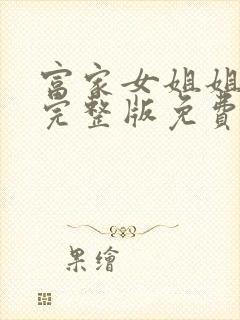 富家女姐姐
完整版免費
果繪